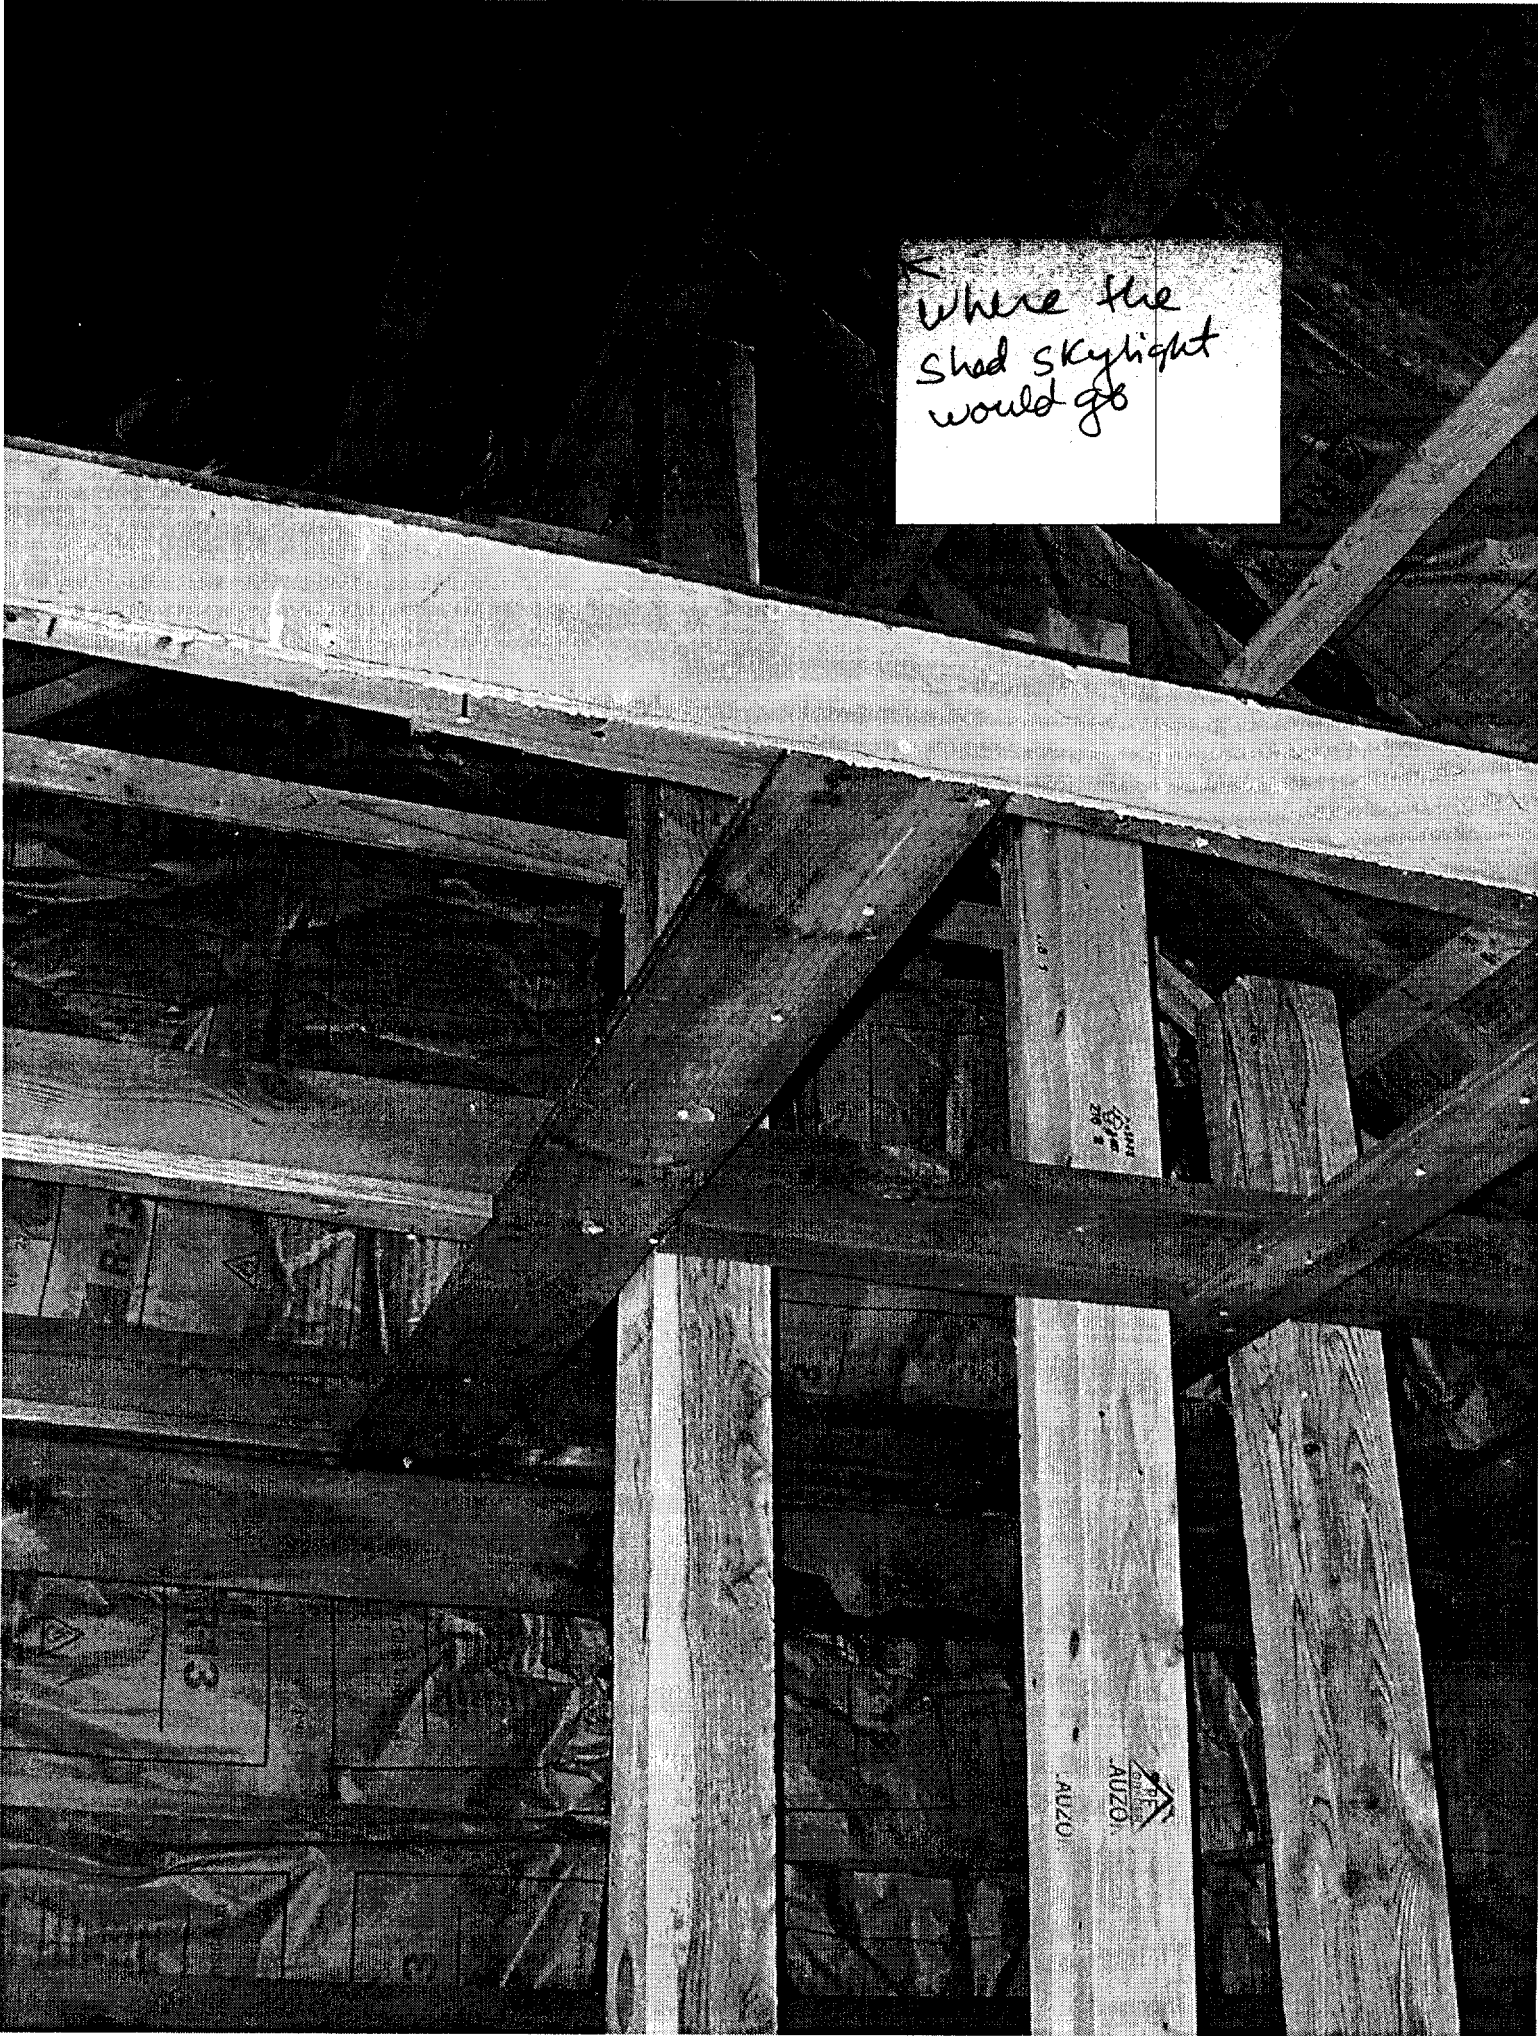 Where the
Shed skylight
would go
R-13
R-13
AUZO
AUZO